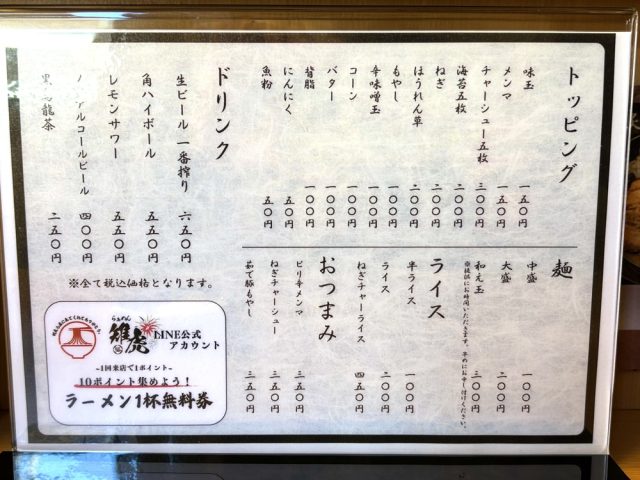 トッピング
味玉 一五〇円
メンマ 一五〇円
チャーシュー五枚 三〇〇円
海苔五枚 二〇〇円
ねぎ 二〇〇円
ほうれん草 二〇〇円
もやし 一〇〇円
辛味噌玉 一〇〇円
コーン 一〇〇円
バター 一〇〇円
背脂 一〇〇円
にんにく 五〇円
魚粉 五〇円
麺
中盛 一〇〇円
大盛 二〇〇円
和え玉 三〇〇円
※提供にお時間いただきます。早めにお申し付けください。
ライス
半ライス 一〇〇円
ライス 一五〇円
ねぎチャーライス 四五〇円
おつまみ
ピリ辛メンマ 三五〇円
ねぎチャーシュー 三五〇円
茹で豚もやし 三五〇円
ドリンク
生ビール 一番搾り 六五〇円
角ハイボール 五五〇円
レモンサワー 五五〇円
ノンアルコールビール 四〇〇円
黒烏龍茶 二五〇円
※全て税込価格となります。
らぁめん
雅虎
LINE公式
アカウント
~1回来店で1ポイント~
10ポイント集めよう!
ラーメン1杯無料券